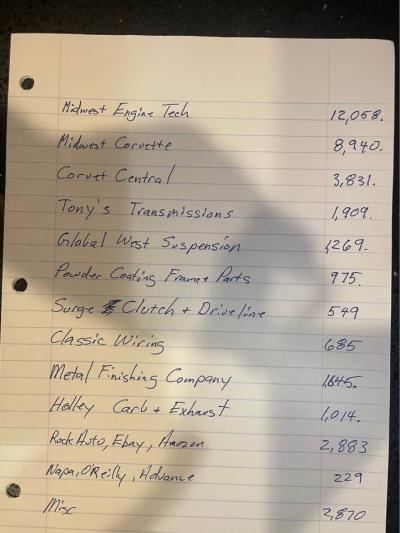 Midwest Engine Tech 12,058.
Midwest Corvette 8,940.
Corvet Central 3,831.
Tony's Transmissions 1,909.
Global West Suspension 1,269.
Powder Coating Frame + Parts 975.
Surge Clutch + Driveline 549
Classic Wiring 685
Metal Finishing Company 1,645.
Holley Carb + Exhaust 1,014.
RockAuto, Ebay, Amazon 2,883
Napa, O'Reilly, Advance 229
Misc 2,870